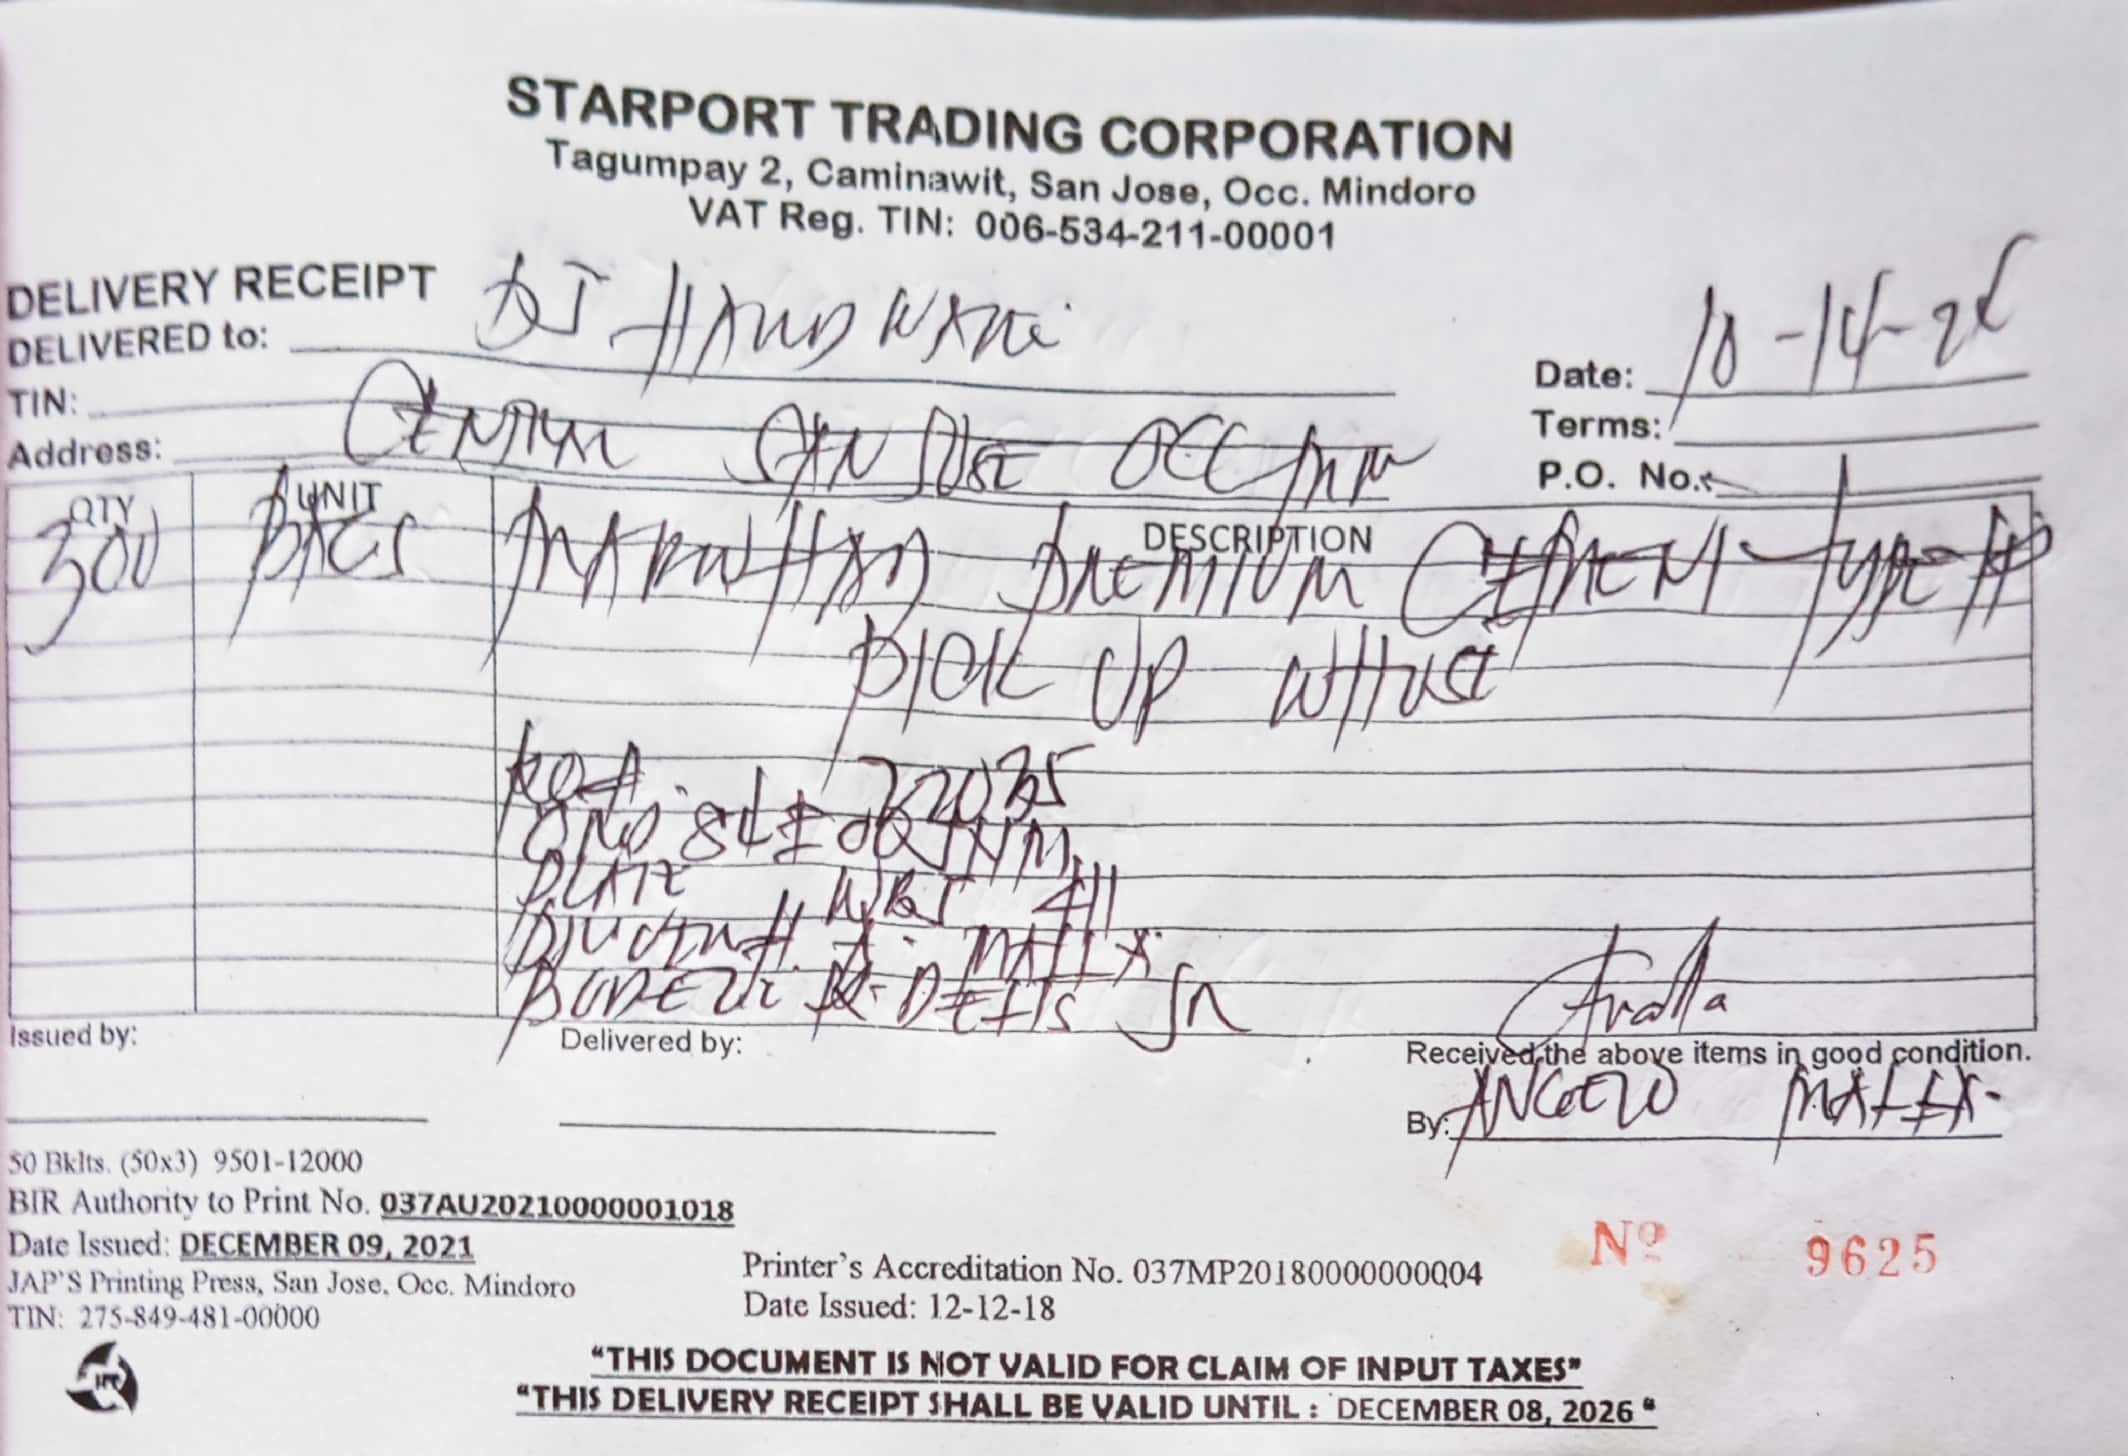 STARPORT TRADING CORPORATION
Tagumpay 2, Caminawit, San Jose, Occ. Mindoro
VAT Reg. TIN: 006-534-211-00001
DELIVERY RECEIPT
DELIVERED to: HARDWARE
Date: 10-14-25
TIN:
Terms:
Address: CENTRAL SAN JOSE OCC MM
P.O. No.:
QTY UNIT DESCRIPTION
300 BAGS MARATHON PREMIUM CEMENT Type
PICK UP WHUSE
22035
PLATE 411
MALLA
JR
Issued by:
Delivered by:
Received the above items in good condition.
By: ANGELO MALLA
50 Bklts. (50x3) 9501-12000
BIR Authority to Print No. 037AU20210000001018
Date Issued: DECEMBER 09, 2021
JAP'S Printing Press, San Jose, Occ. Mindoro
TIN: 275-849-481-00000
Printer's Accreditation No. 037MP20180000000004
Date Issued: 12-12-18
Nº 9625
"THIS DOCUMENT IS NOT VALID FOR CLAIM OF INPUT TAXES"
"THIS DELIVERY RECEIPT SHALL BE VALID UNTIL : DECEMBER 08, 2026 "